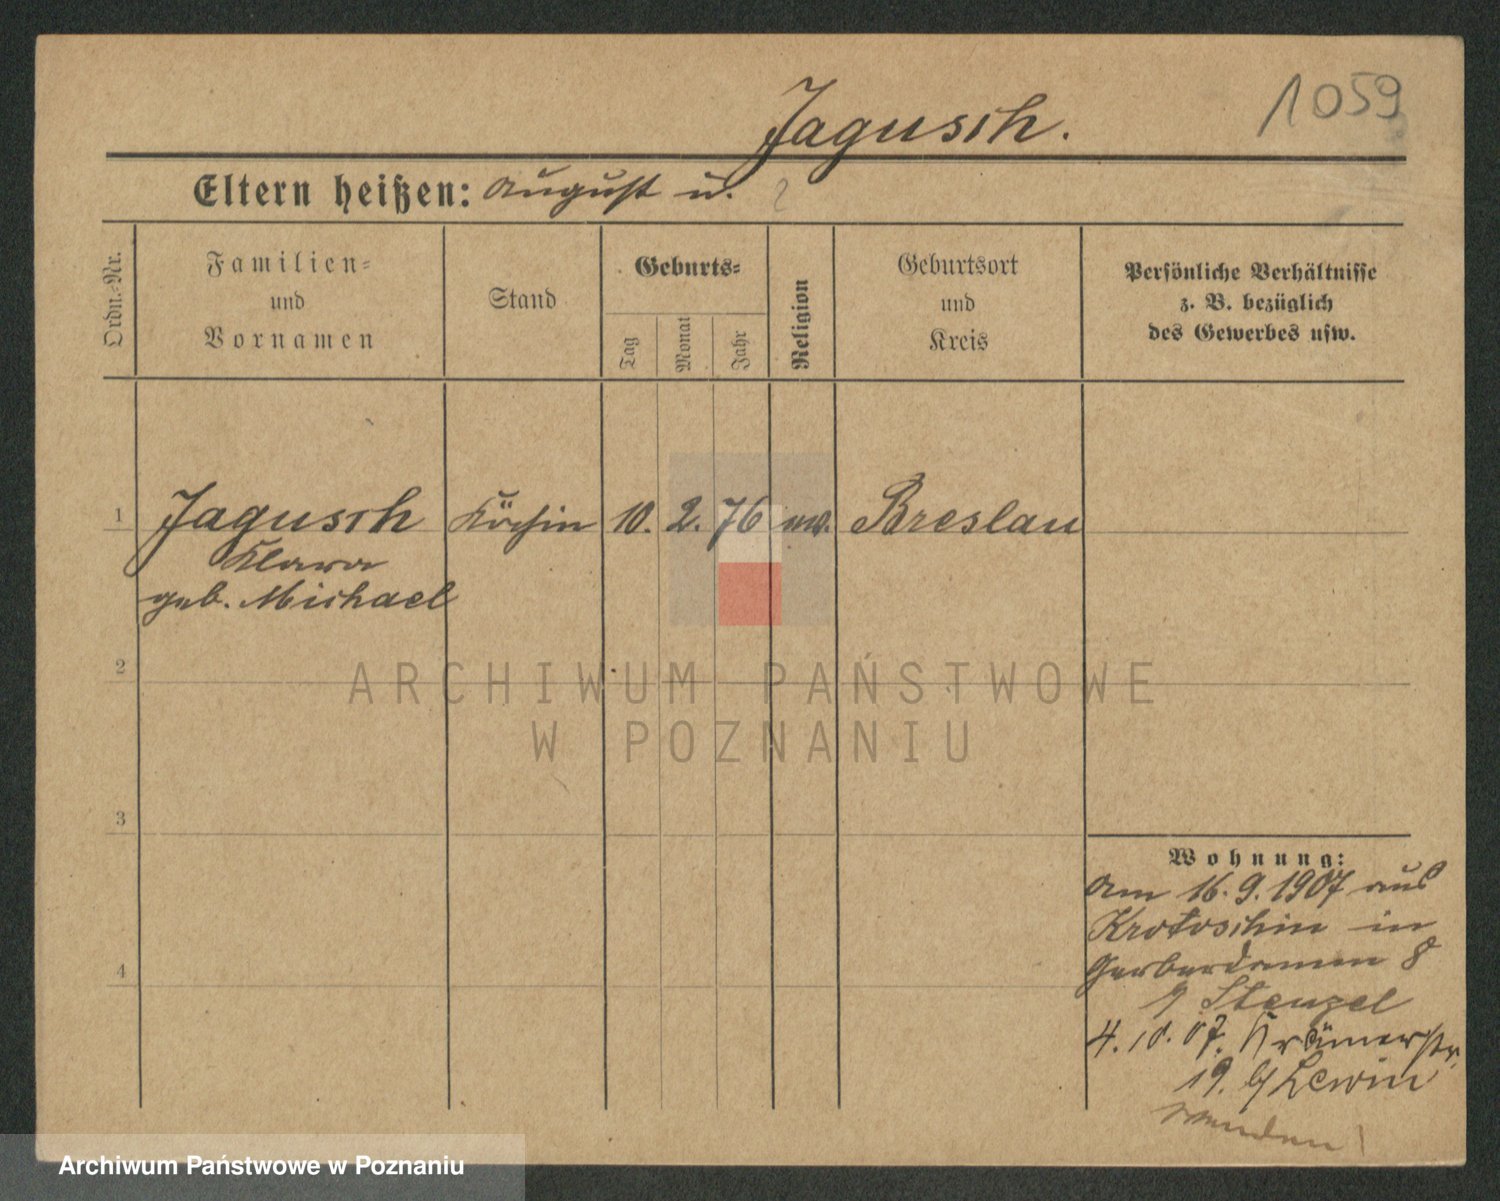 1059
Jagusch.
Eltern heißen: August u. ?
Ordn.-Nr.
Familien-
und
Vornamen
Stand
Geburts-
Tag
Monat
Jahr
Religion
Geburtsort
und
Kreis
Persönliche Verhältnisse
z. B. bezüglich
des Gewerbes usw.
1 Jagusch Köchin 10. 2. 76 Breslau
Klara
geb. Michael
2
3
4
Wohnung:
am 16.9.1907 aus
Krotoschin in
Gerberdamm 8
Stenzel
4.10.07. Krämerstr.
19. b/ Lewin
wenden!
ARCHIWUM PAŃSTWOWE
W POZNANIU
Archiwum Państwowe w Poznaniu